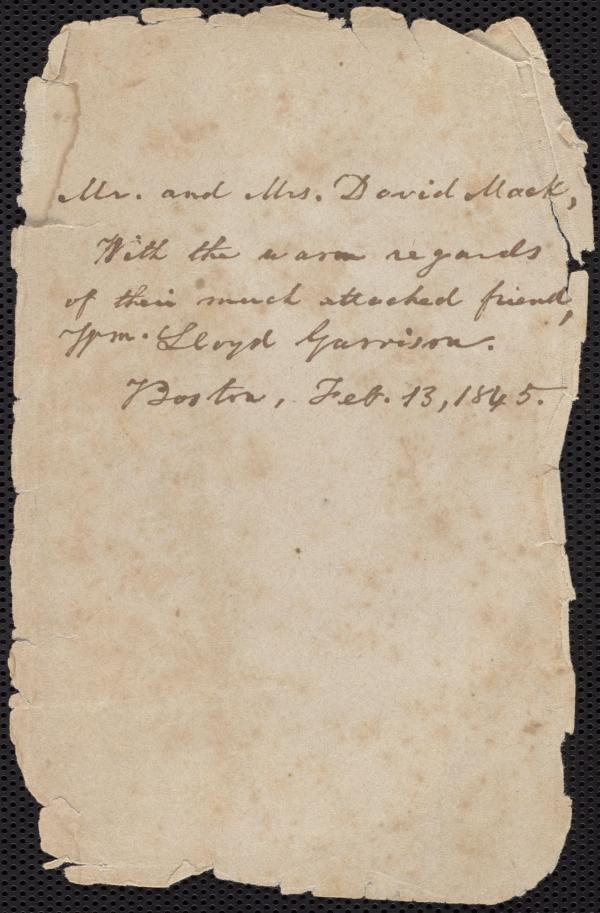 Mr. and Mrs. David Mack,
With the warm regards
of their much attached friend,
Wm. Lloyd Garrison.
Boston, Feb. 13, 1845.